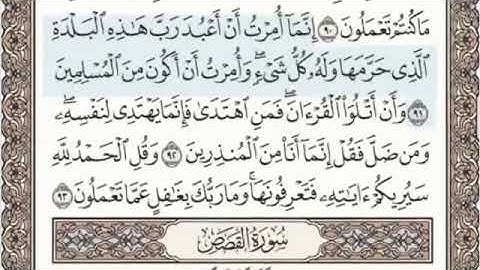 مَا كُنتُمْ تَعْمَلُونَ ٩٠ إِنَّمَآ أُمِرْتُ أَنْ أَعْبُدَ رَبَّ هَٰذِهِ ٱلْبَلْدَةِ
ٱلَّذِى حَرَّمَهَا وَلَهُۥ كُلُّ شَىْءٍۖ وَأُمِرْتُ أَنْ أَكُونَ مِنَ ٱلْمُسْلِمِينَ
٩١ وَأَنْ أَتْلُوَا۟ ٱلْقُرْءَانَۖ فَمَنِ ٱهْتَدَىٰ فَإِنَّمَا يَهْتَدِى لِنَفْسِهِۦۖ
وَمَن ضَلَّ فَقُلْ إِنَّمَآ أَنَا۠ مِنَ ٱلْمُنذِرِينَ ٩٢ وَقُلِ ٱلْحَمْدُ لِلَّهِ
سَيُرِيكُمْ ءَايَٰتِهِۦ فَتَعْرِفُونَهَاۚ وَمَا رَبُّكَ بِغَٰفِلٍ عَمَّا تَعْمَلُونَ ٩٣
سُورَةُ القَصَصِ